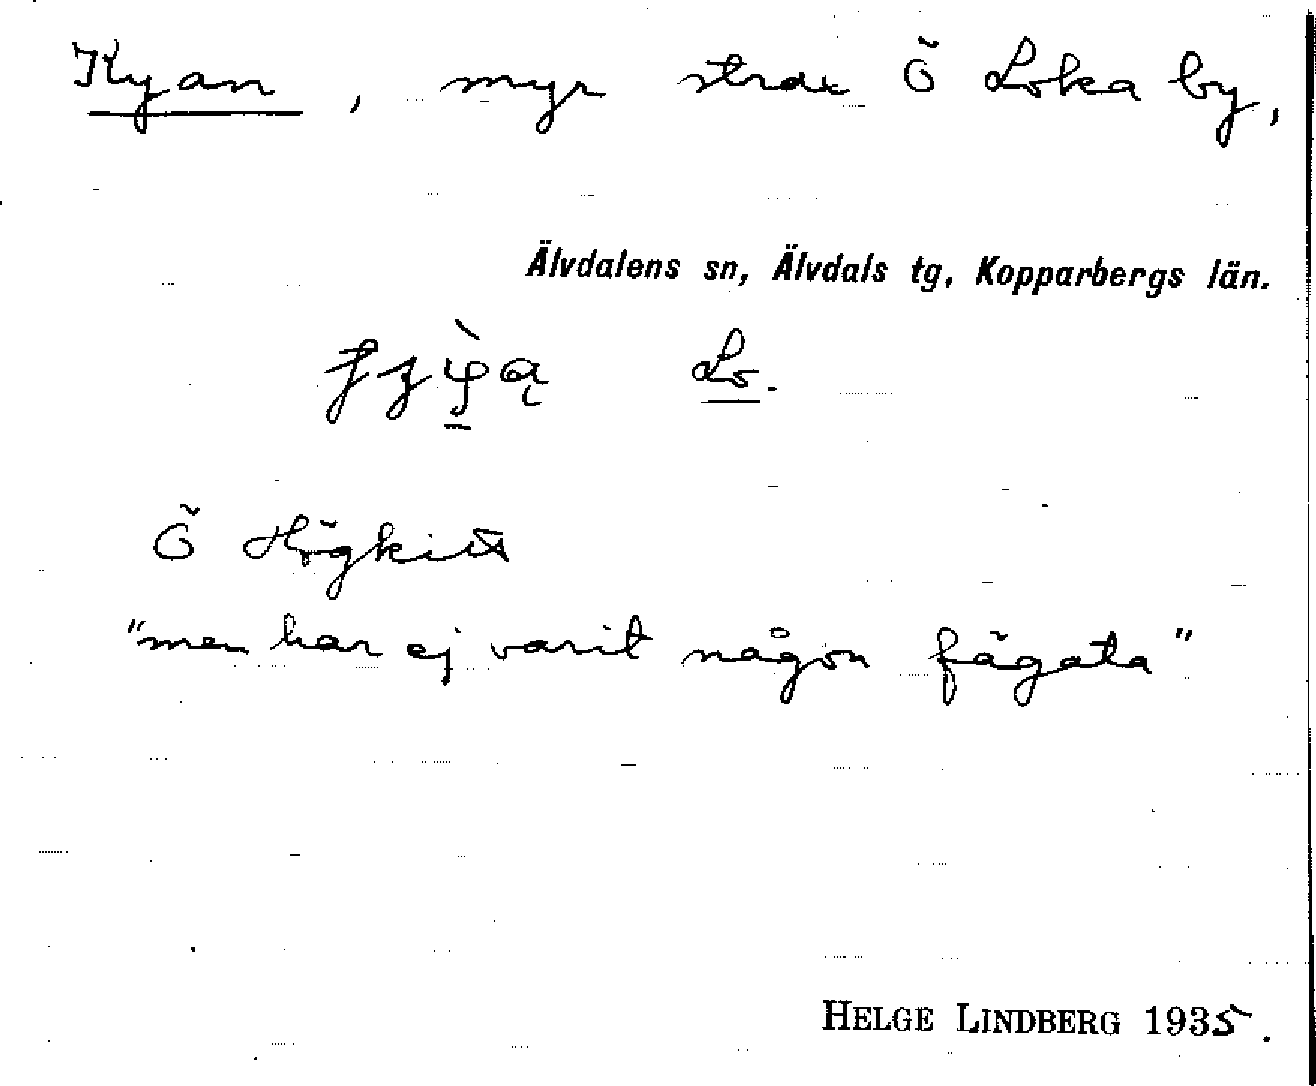 Kyan, myr strax Ö Loka by,
Älvdalens sn, Älvdals tg, Kopparbergs län.
Lo.
Ö Högkitt
"men har ej varit någon fägata"
HELGE LINDBERG 1935.